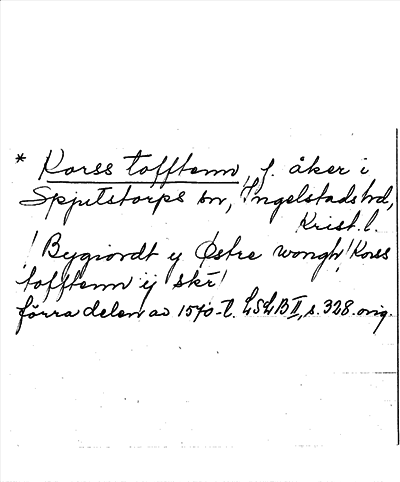 * Korss tofftenn, f. åker i
Spjutstorps sn, Ingelstads hd,
Krist. l.
! Bygiordt y Østre wongh! Korss
tofftenn ij skr!
förra delen av 1570-t. LSLB II, s. 328. orig.